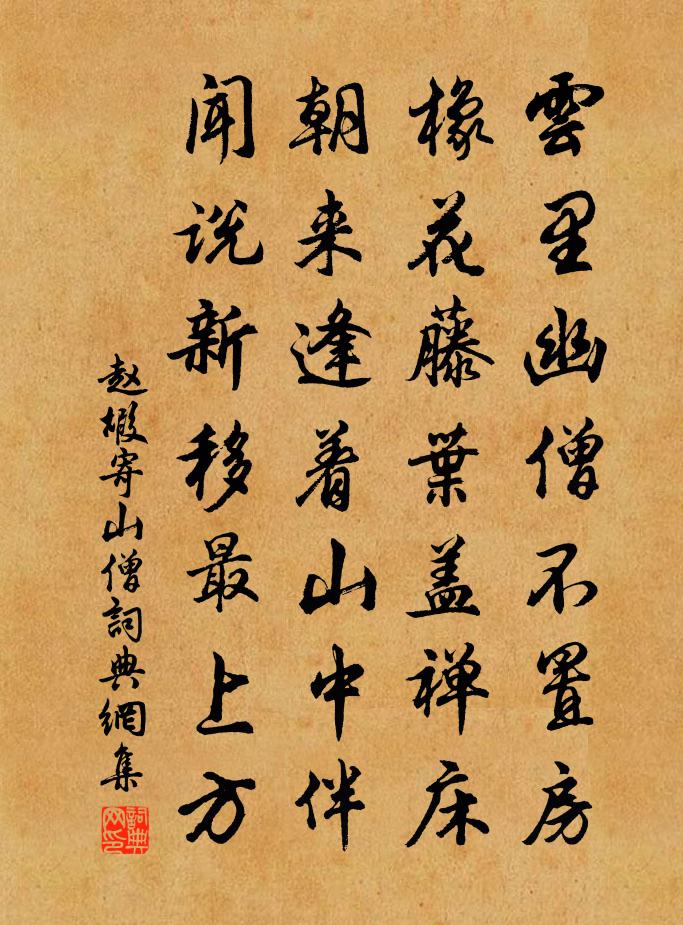 雲里幽僧不置房
橡花藤葉盖禅床
朝来逢着山中伴
闻说新移最上方
赵嘏寄山僧詞典網集
詞典网印